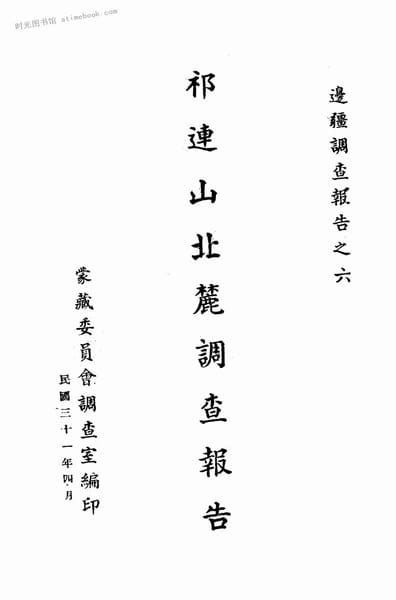 时光图书馆 atimebook.com
邊疆調查報告之六
祁連山北麓調查報告
蒙藏委員會調查室編印
民國三十一年四月